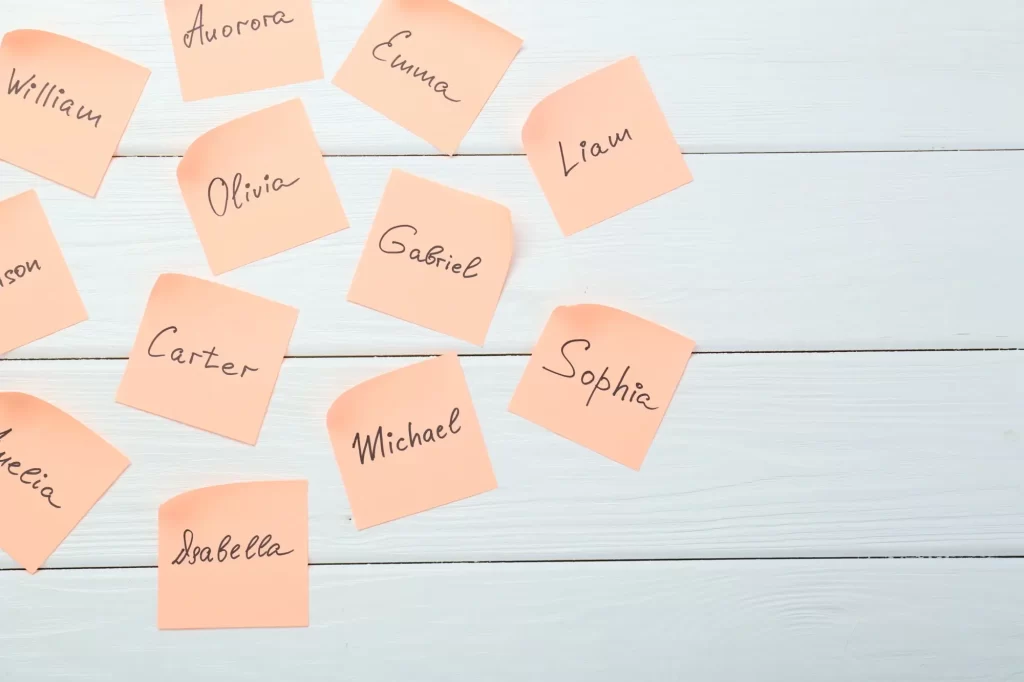 Auorora
Emma
William
Liam
Olivia
Gabriel
son
Carter
Sophia
Michael
melia
Isabella